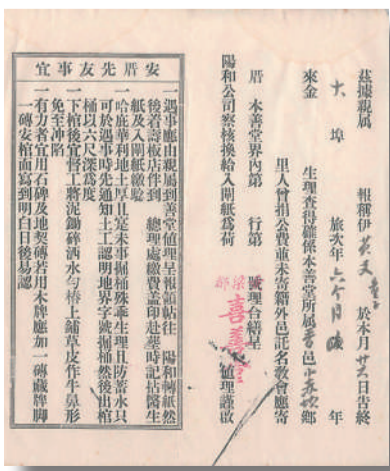 茲據親属 報稱伊 於本月廿六日告終
大埠 旅次年六个月 年
來金 生理查得確係本善堂所属香邑小 鄉
里人曾捐公費並未寄籍外邑託名教會應寄
厝 本善堂界內第 行第 號理合繕呈
陽和公司察核換給入閘紙爲荷
喜善堂
值理謹啟
安厝先友事宜
一遇事應由親属到善堂値理呈報領帖往 陽和轉紙然
後着壽板店伴到 總理處繳費蓋印赴葬時記拈醫生
紙及入閘紙繳驗
一哈庇華利地土厚且是未事掘桶殊乖生理且防蓄水只
可於遇事時先通知土工認明地界字號掘桶然後出棺
桶以六尺深爲度
一下棺後宜督工將泥鋤碎洒水勻樁上鋪草皮作牛鼻形
免至冲陷
一有力者宜用石碑及地契磚若用木牌應加一磚藏牌脚
一磚安棺面寫到明白日後易認